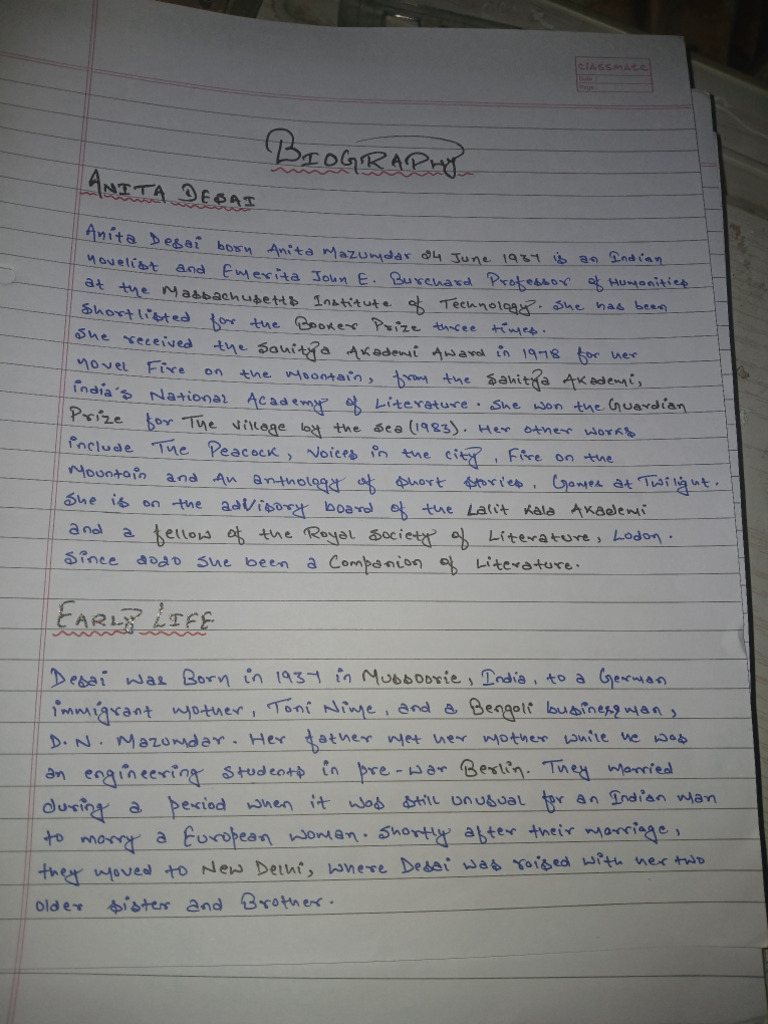 classmate
Date
Page
BIOGRAPHY
ANITA DESAI
Anita Desai born Anita Mazumdar 24 June 1937 is an Indian
novelist and Emerita John E. Burchard Professor of Humanities
at the Massachusetts Institute of Technology. She has been
shortlisted for the Booker Prize three times.
She received the Sahitya Akademi Award in 1978 for her
novel Fire on the Mountain, from the Sahitya Akademi,
india's National Academy of Literature. She won the Guardian
Prize for The Village by the sea (1983). Her other works
include The Peacock, Voices in the city, Fire on the
Mountain and An anthology of short stories, Games at Twilight.
She is on the advisory board of the Lalit Kala Akademi
and a fellow of the Royal Society of Literature, Lodon.
Since 2020 she been a Companion of Literature.
EARLY LIFE
Desai was Born in 1937 in Mussoorie, India, to a German
immigrant mother, Toni Nime, and a Bengoli businessman,
D. N. Mazumdar. Her father met her mother while he was
an engineering students in pre-war Berlin. They married
during a period when it was still unusual for an Indian man
to marry a European woman. Shortly after their marriage,
they moved to New Delhi, where Desai was raised with her two
older sister and Brother.